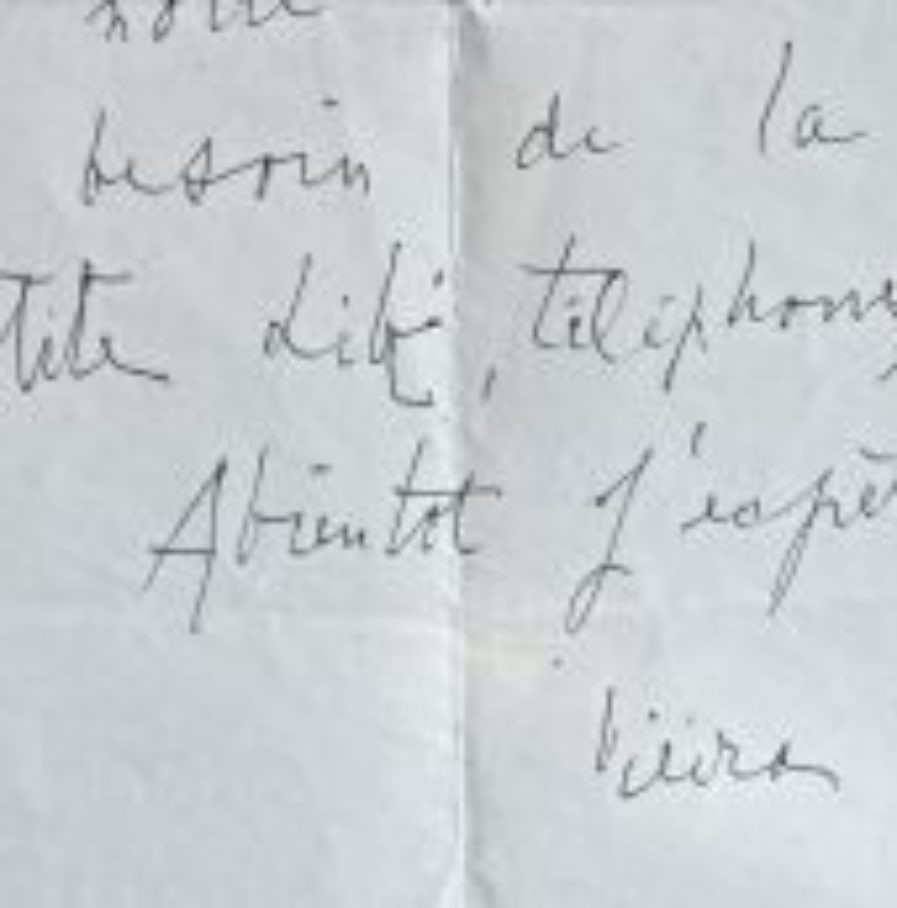 besoin de la
tite Libé, téléphone
Abientot j'espè
Vieira